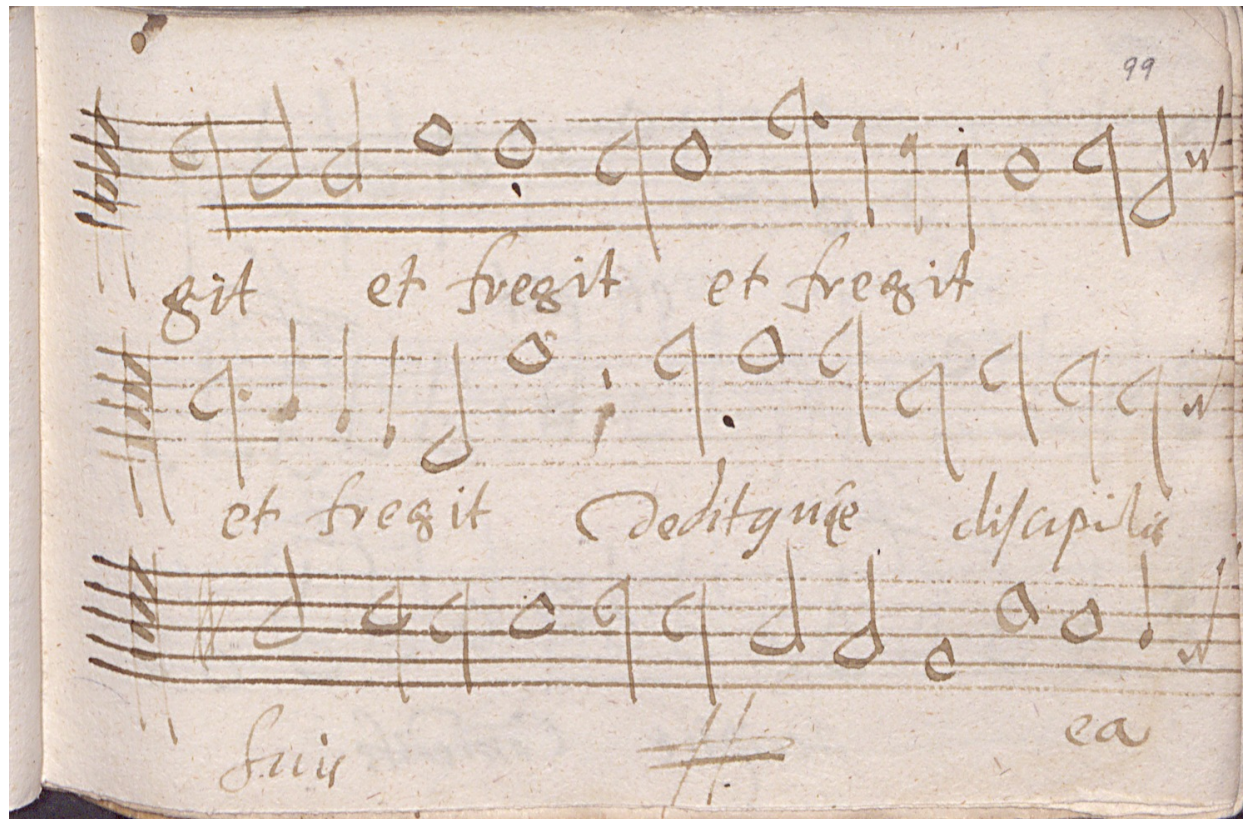 99
git et fregit et fregit
et fregit deditque discipilis
suis ea